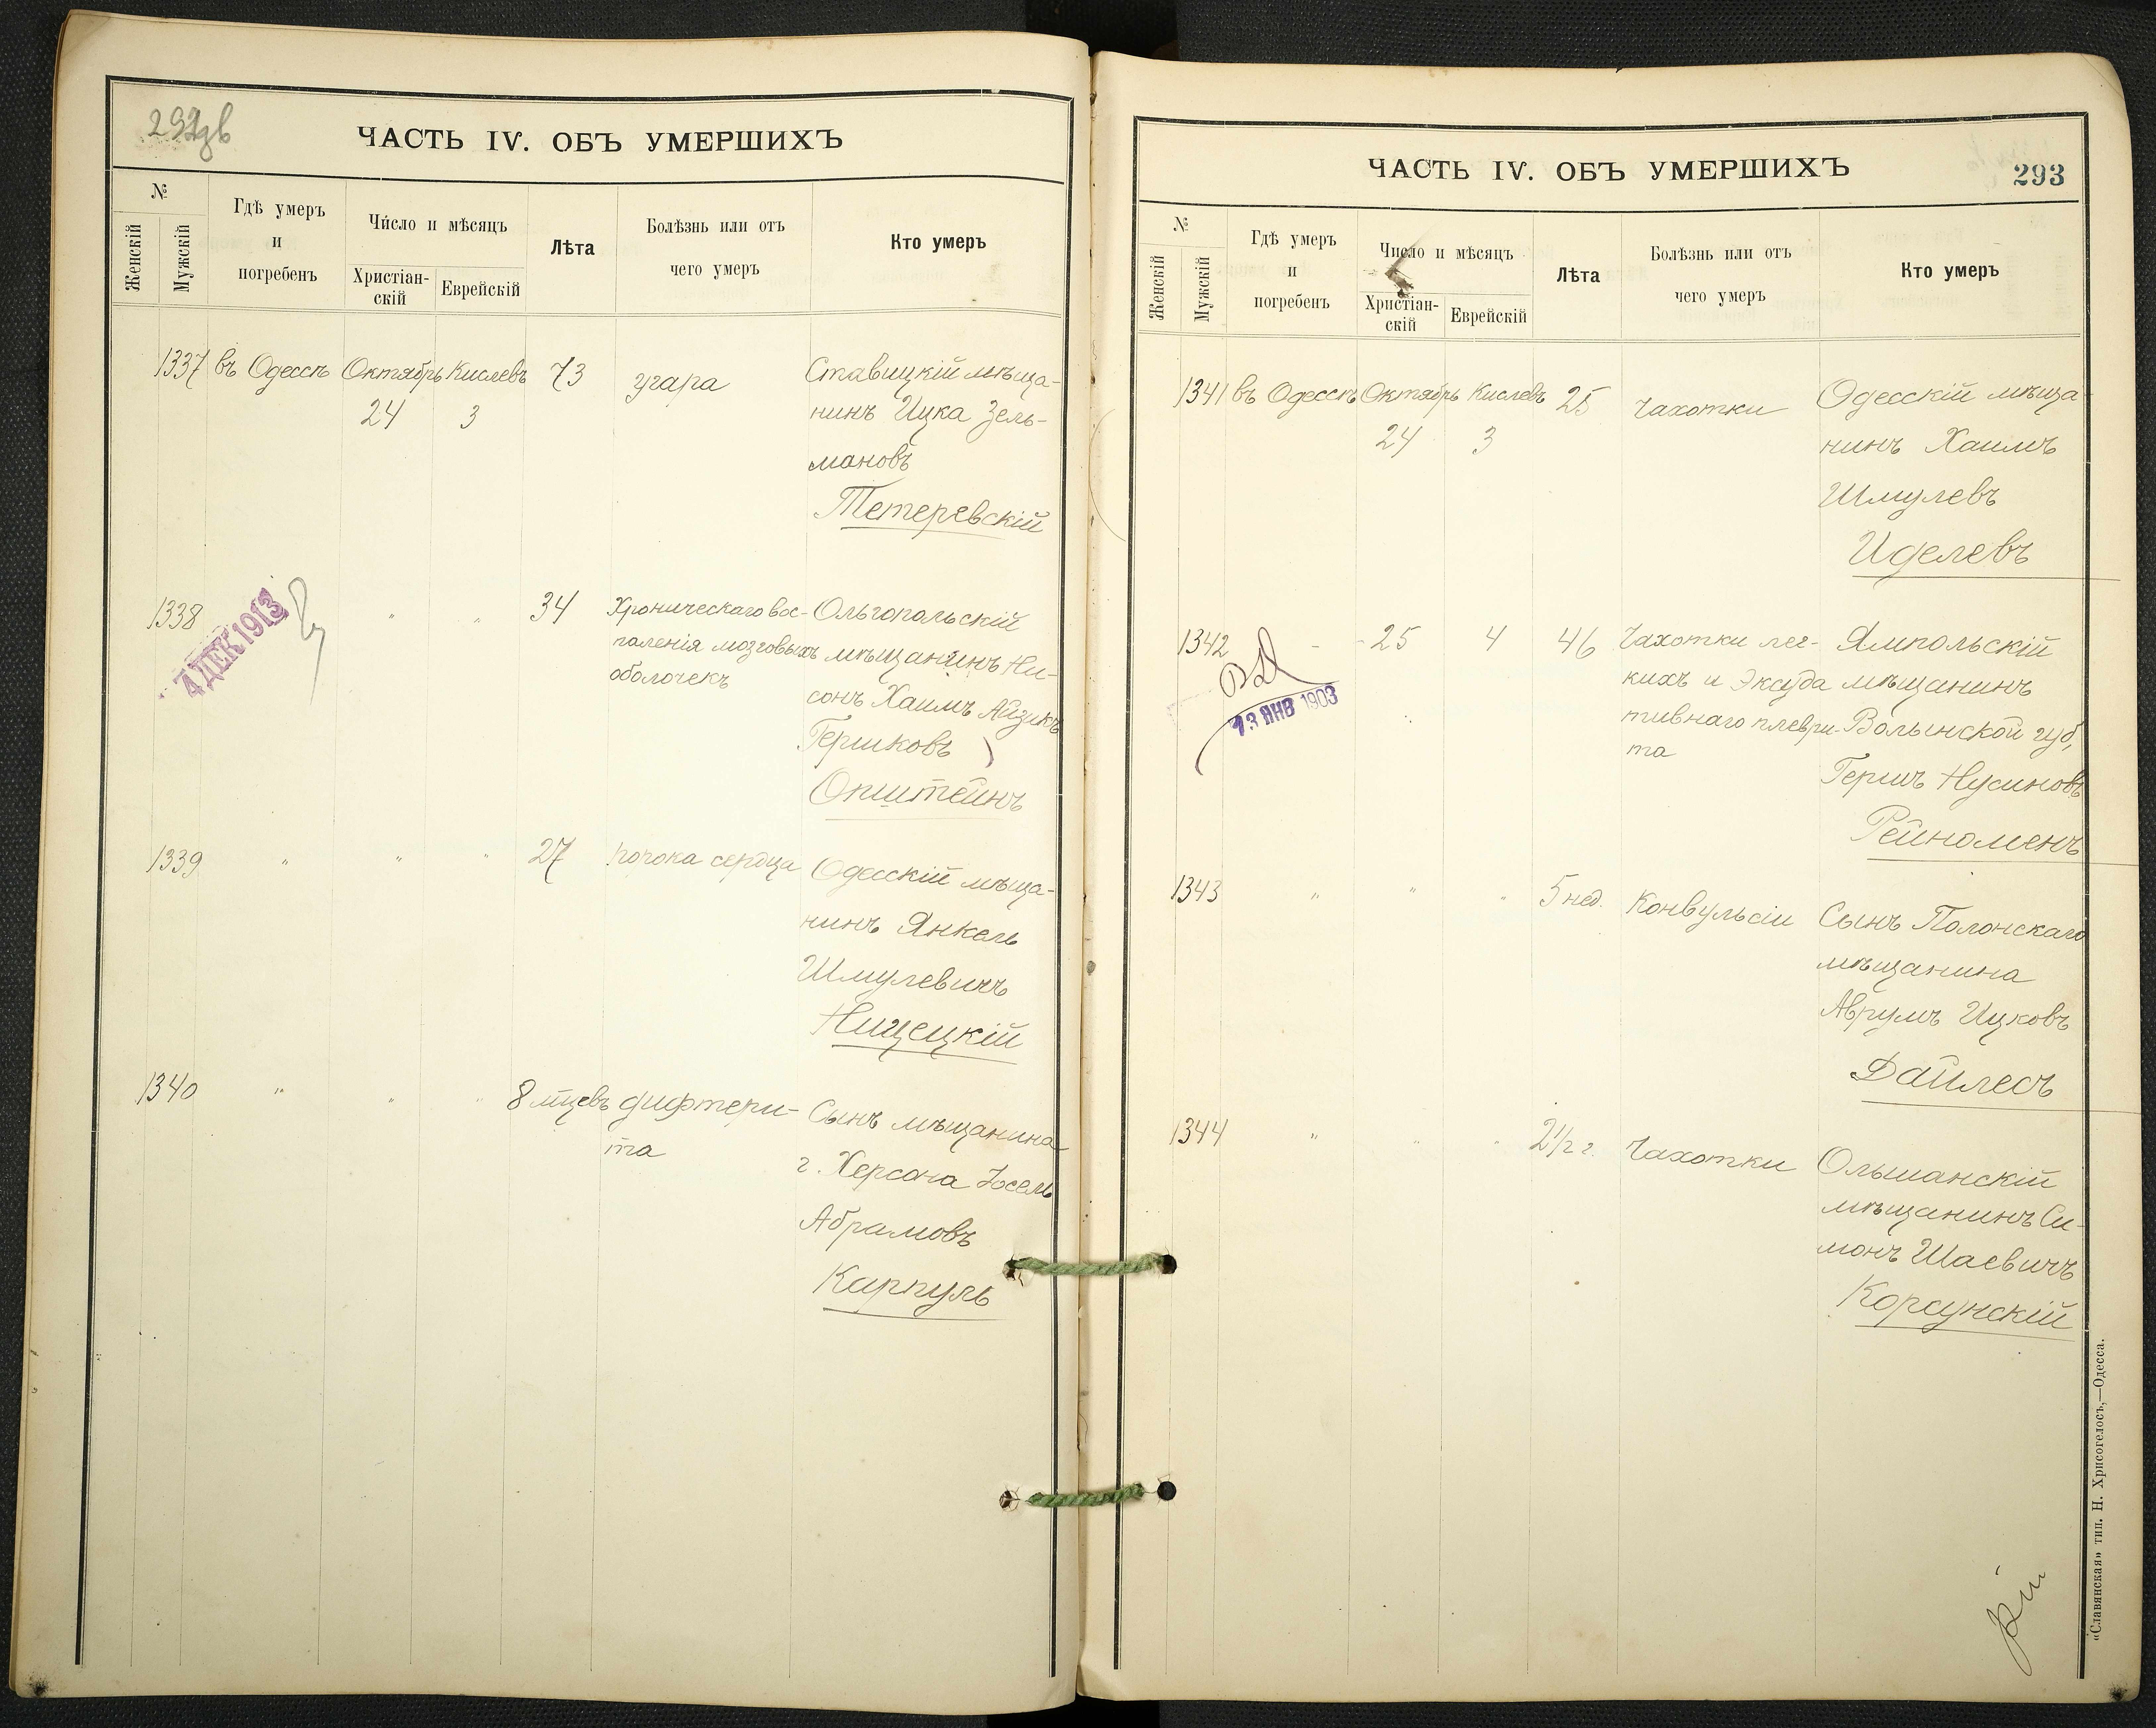 ЧАСТЬ IV. ОБЪ УМЕРШИХЪ
№
Женскій
Мужскій
Гдѣ умеръ
и
погребенъ
Число и мѣсяцъ
Христіан-
скій
Еврейскій
Лѣта
Болѣзнь или отъ
чего умеръ
Кто умеръ
1337 въ Одессѣ Октябрь Кислевъ 73 угара Ставицкій мѣща-
24 3 нинъ Ицка Зель-
мановъ
Тетеревскій
1338 " " 34 Хроническаго вос- Ольгопольскій
паленія мозговыхъ мѣщанинъ Ни-
оболочекъ сонъ Хаимъ Айзикъ
Гершковъ
Општейнъ
4 ДЕК 1913
1339 " " " 27 порока сердца Одесскій мѣща-
нинъ Янкель
Шмулевичъ
Нищецкій
1340 " " " 8 мцевъ дифтери- Сынъ мѣщанина
та г. Херсона Іосель
Абрамовъ
Карпуль
ЧАСТЬ IV. ОБЪ УМЕРШИХЪ
293
№
Женскій
Мужскій
Гдѣ умеръ
и
погребенъ
Число и мѣсяцъ
Христіан-
скій
Еврейскій
Лѣта
Болѣзнь или отъ
чего умеръ
Кто умеръ
1341 въ Одессѣ Октябрь Кислевъ 25 Чахотки Одесскій мѣща-
24 3 нинъ Хаимъ
Шмулевъ
Иделевъ
1342 - 25 4 46 Чахотки лег- Ямпольскій
кихъ и Эксуда мѣщанинъ
тивнаго плеври- Волынской губ,
та Гершъ Нусиновъ
Рейноменъ
13 ЯНВ 1903
1343 " " " 5 нед. Конвульсіи Сынъ Полонскаго
мѣщанина
Аврумъ Ицковъ
Дайлесъ
1344 " " " 2 1/2 г. Чахотки Ольшанскій
мѣщанинъ Си-
монъ Шаевичъ
Корсунскій
«Славянская» тип. Н. Хрисогелосъ,—Одесса.